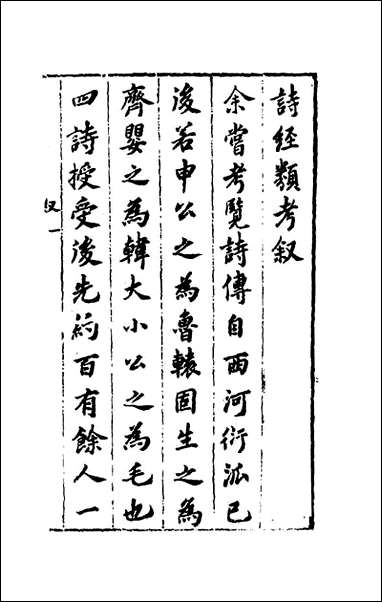 詩經類考叙
余嘗考覽詩傳自西河衍泒已
後若申公之為魯轅固生之為
齊嬰之為韓大小公之為毛也
四詩授受後先約百有餘人一
叙一